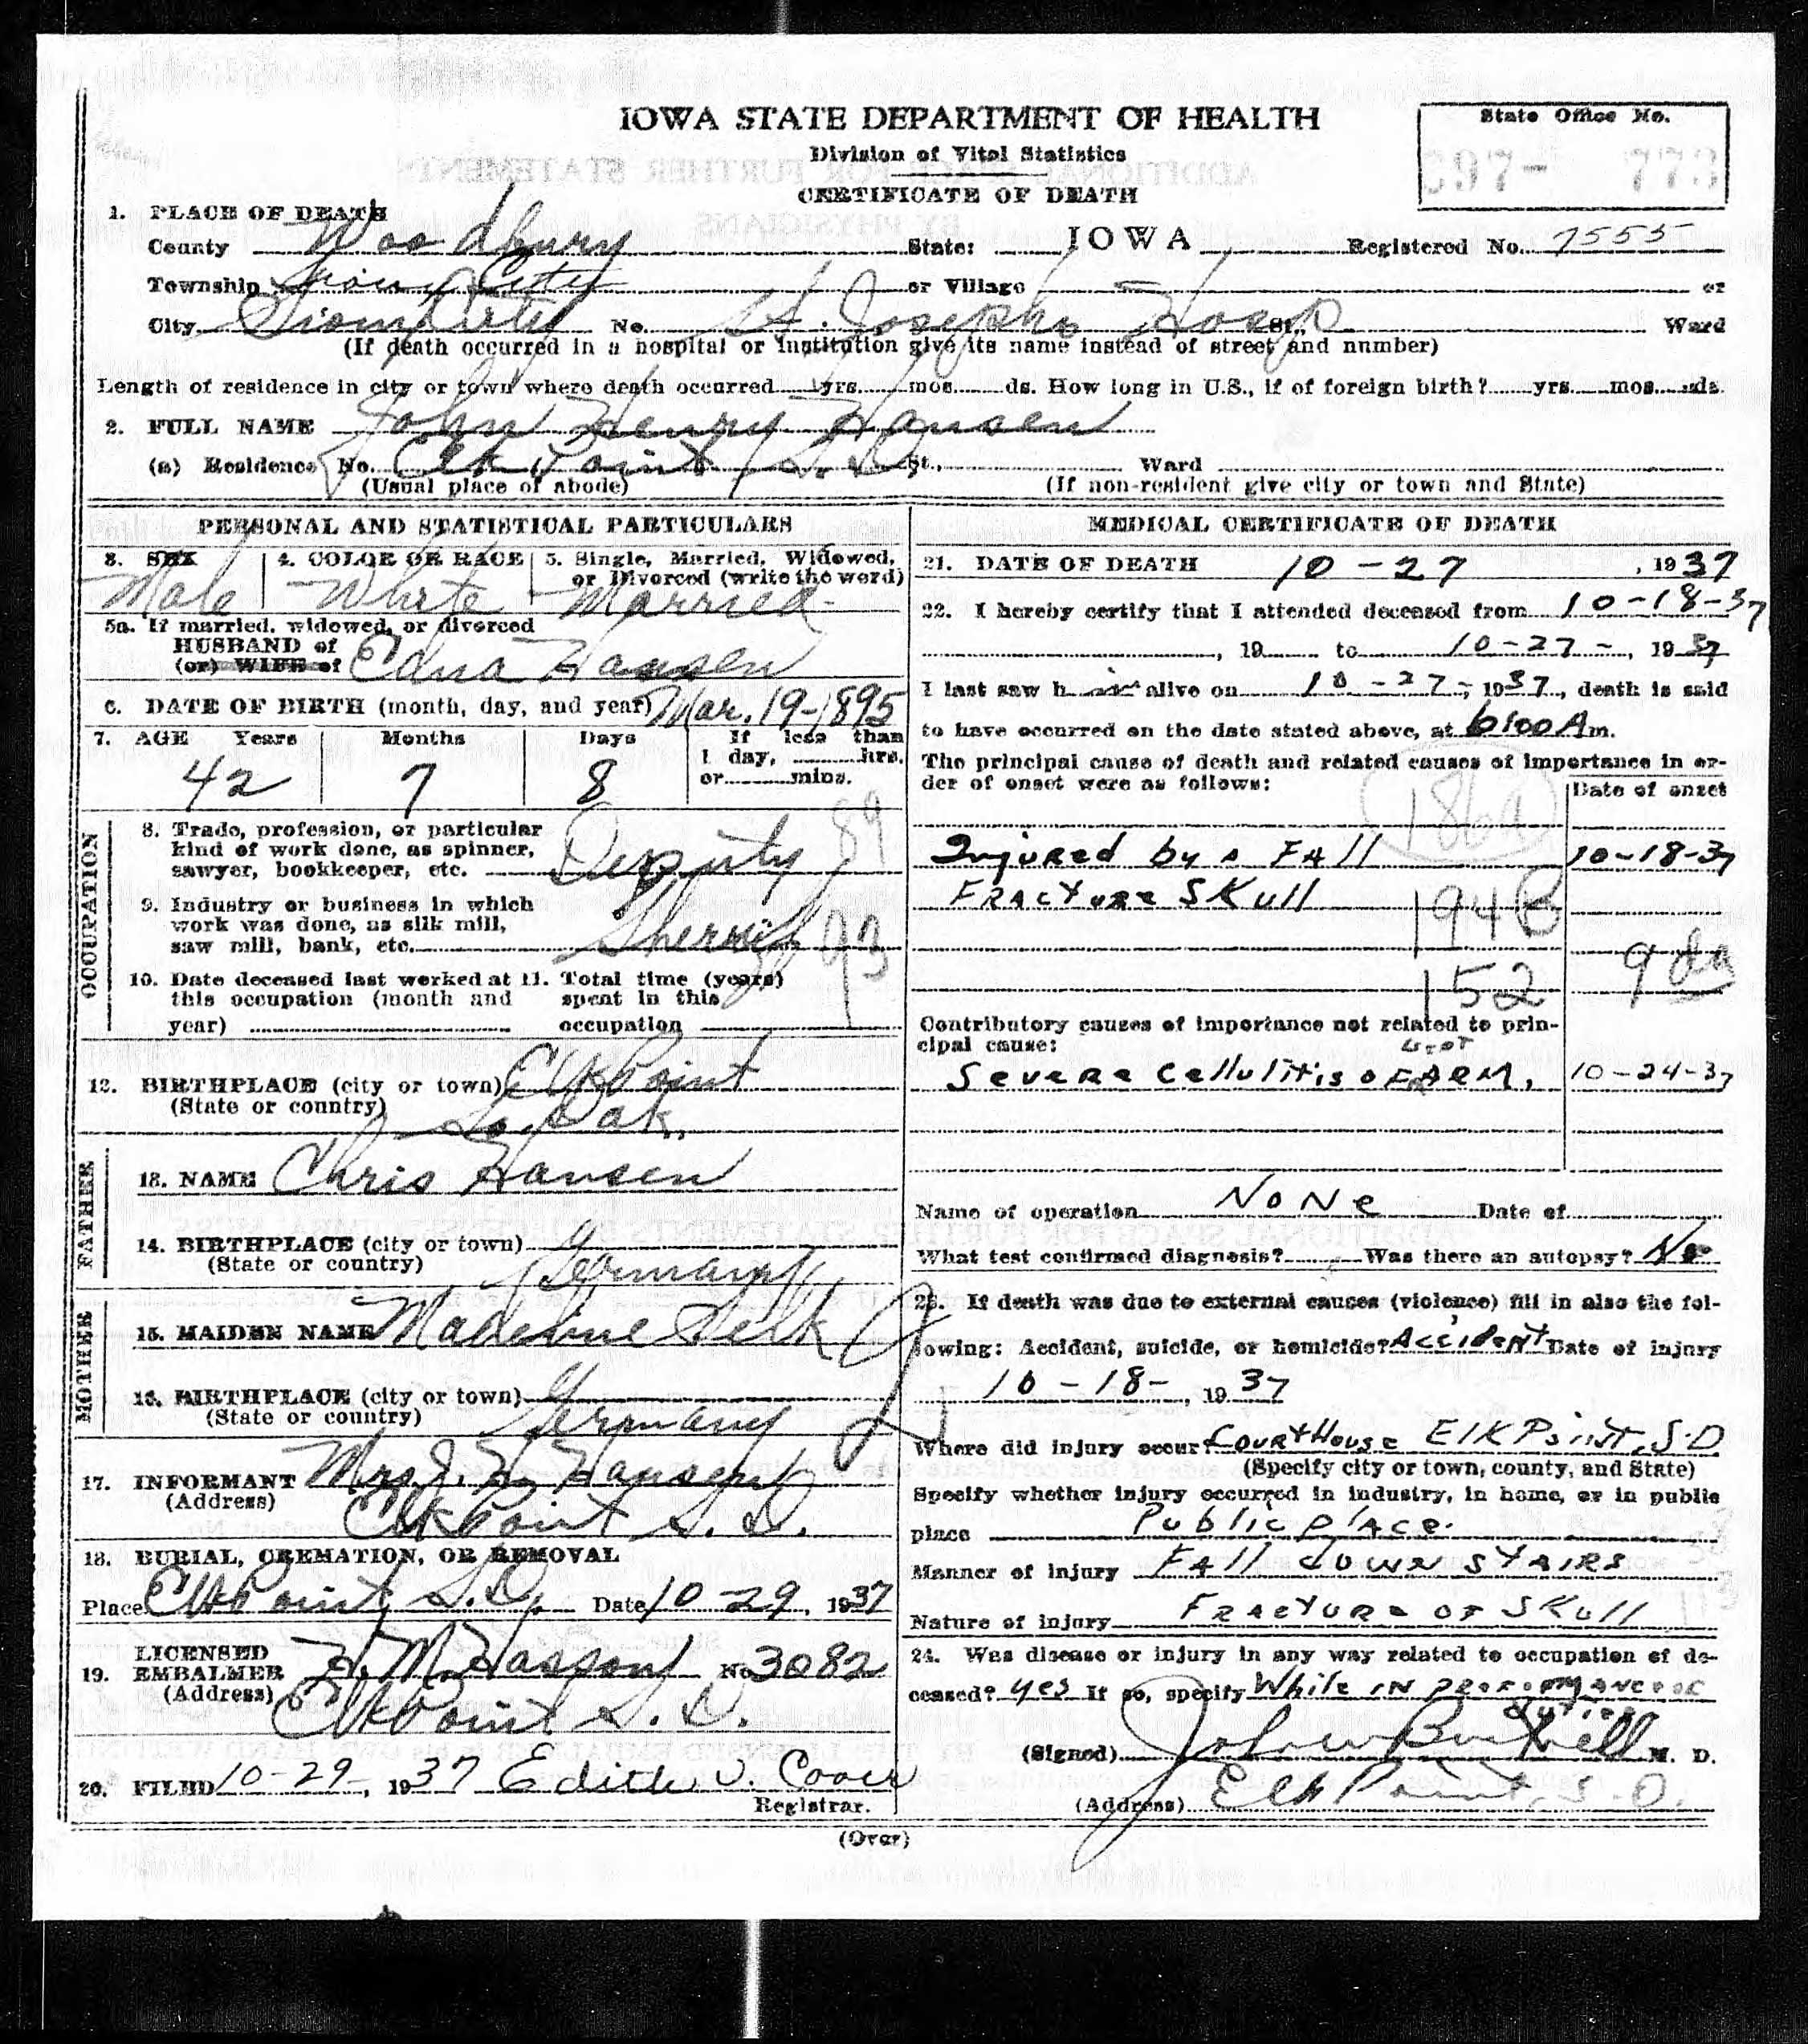 IOWA STATE DEPARTMENT OF HEALTH
Division of Vital Statistics
CERTIFICATE OF DEATH
State Office No.
397- 773
1. PLACE OF DEATH
County Woodbury State: IOWA Registered No. 7555
Township Sioux City or Village or
City Sioux City No. St. Josephs Hosp St., Ward
(If death occurred in a hospital or institution give its name instead of street and number)
Length of residence in city or town where death occurred yrs. mos. ds. How long in U.S., if of foreign birth? yrs. mos. ds.
2. FULL NAME John Henry Hansen
(a) Residence No. Elk Point, S.D. St., Ward
(Usual place of abode) (If non-resident give city or town and State)
PERSONAL AND STATISTICAL PARTICULARS
3. SEX 4. COLOR OR RACE 5. Single, Married, Widowed,
or Divorced (write the word)
Male White Married
5a. If married, widowed, or divorced
HUSBAND of
(or) WIFE of Edna Hansen
6. DATE OF BIRTH (month, day, and year) Mar. 19-1895
7. AGE Years Months Days If less than
1 day, hrs.
or mins.
42 7 8
OCCUPATION
8. Trade, profession, or particular
kind of work done, as spinner,
sawyer, bookkeeper, etc. Deputy 89
9. Industry or business in which
work was done, as silk mill,
saw mill, bank, etc. Sherriff 93
10. Date deceased last worked at 11. Total time (years)
this occupation (month and spent in this
year) occupation
12. BIRTHPLACE (city or town) Elk Point
(State or country) So. Dak.
FATHER
13. NAME Chris Hansen
14. BIRTHPLACE (city or town)
(State or country) Germany
MOTHER
15. MAIDEN NAME
16. BIRTHPLACE (city or town)
(State or country) Germany
17. INFORMANT Mrs. J. H. Hansen
(Address) Elk Point S. D.
18. BURIAL, CREMATION, OR REMOVAL
Place Elk Point, S.D. Date 10-29, 1937
LICENSED
19. EMBALMER H. M. Hasson No 3082
(Address) Elk Point S. D.
20. FILED 10-29-, 1937 Edith
Registrar.
MEDICAL CERTIFICATE OF DEATH
21. DATE OF DEATH 10-27, 1937
22. I hereby certify that I attended deceased from 10-18-37
, 19 to 10-27-, 1937
I last saw h im alive on 10-27-, 1937, death is said
to have occurred on the date stated above, at 6:00 A m.
The principal cause of death and related causes of importance in or-
der of onset were as follows: Date of onset
186a
Injured by a Fall 10-18-37
Fracture Skull
194
152 9 da
Contributory causes of importance not related to prin-
cipal cause:
Severe Cellulitis of ARM, 10-24-37
Name of operation NoNe Date of
What test confirmed diagnosis? Was there an autopsy? No
23. If death was due to external causes (violence) fill in also the fol-
lowing: Accident, suicide, or homicide? Accident Date of injury
10-18-, 1937
Where did injury occur? CourtHouse Elk Point, S.D
(Specify city or town, county, and State)
Specify whether injury occurred in industry, in home, or in public
place Public place.
Manner of injury Fall down stairs
Nature of injury Fracture of Skull
24. Was disease or injury in any way related to occupation of de-
ceased? yes If so, specify While in proformance of
duties
(Signed) M. D.
(Address) Elk Point, S.D.
(Over)